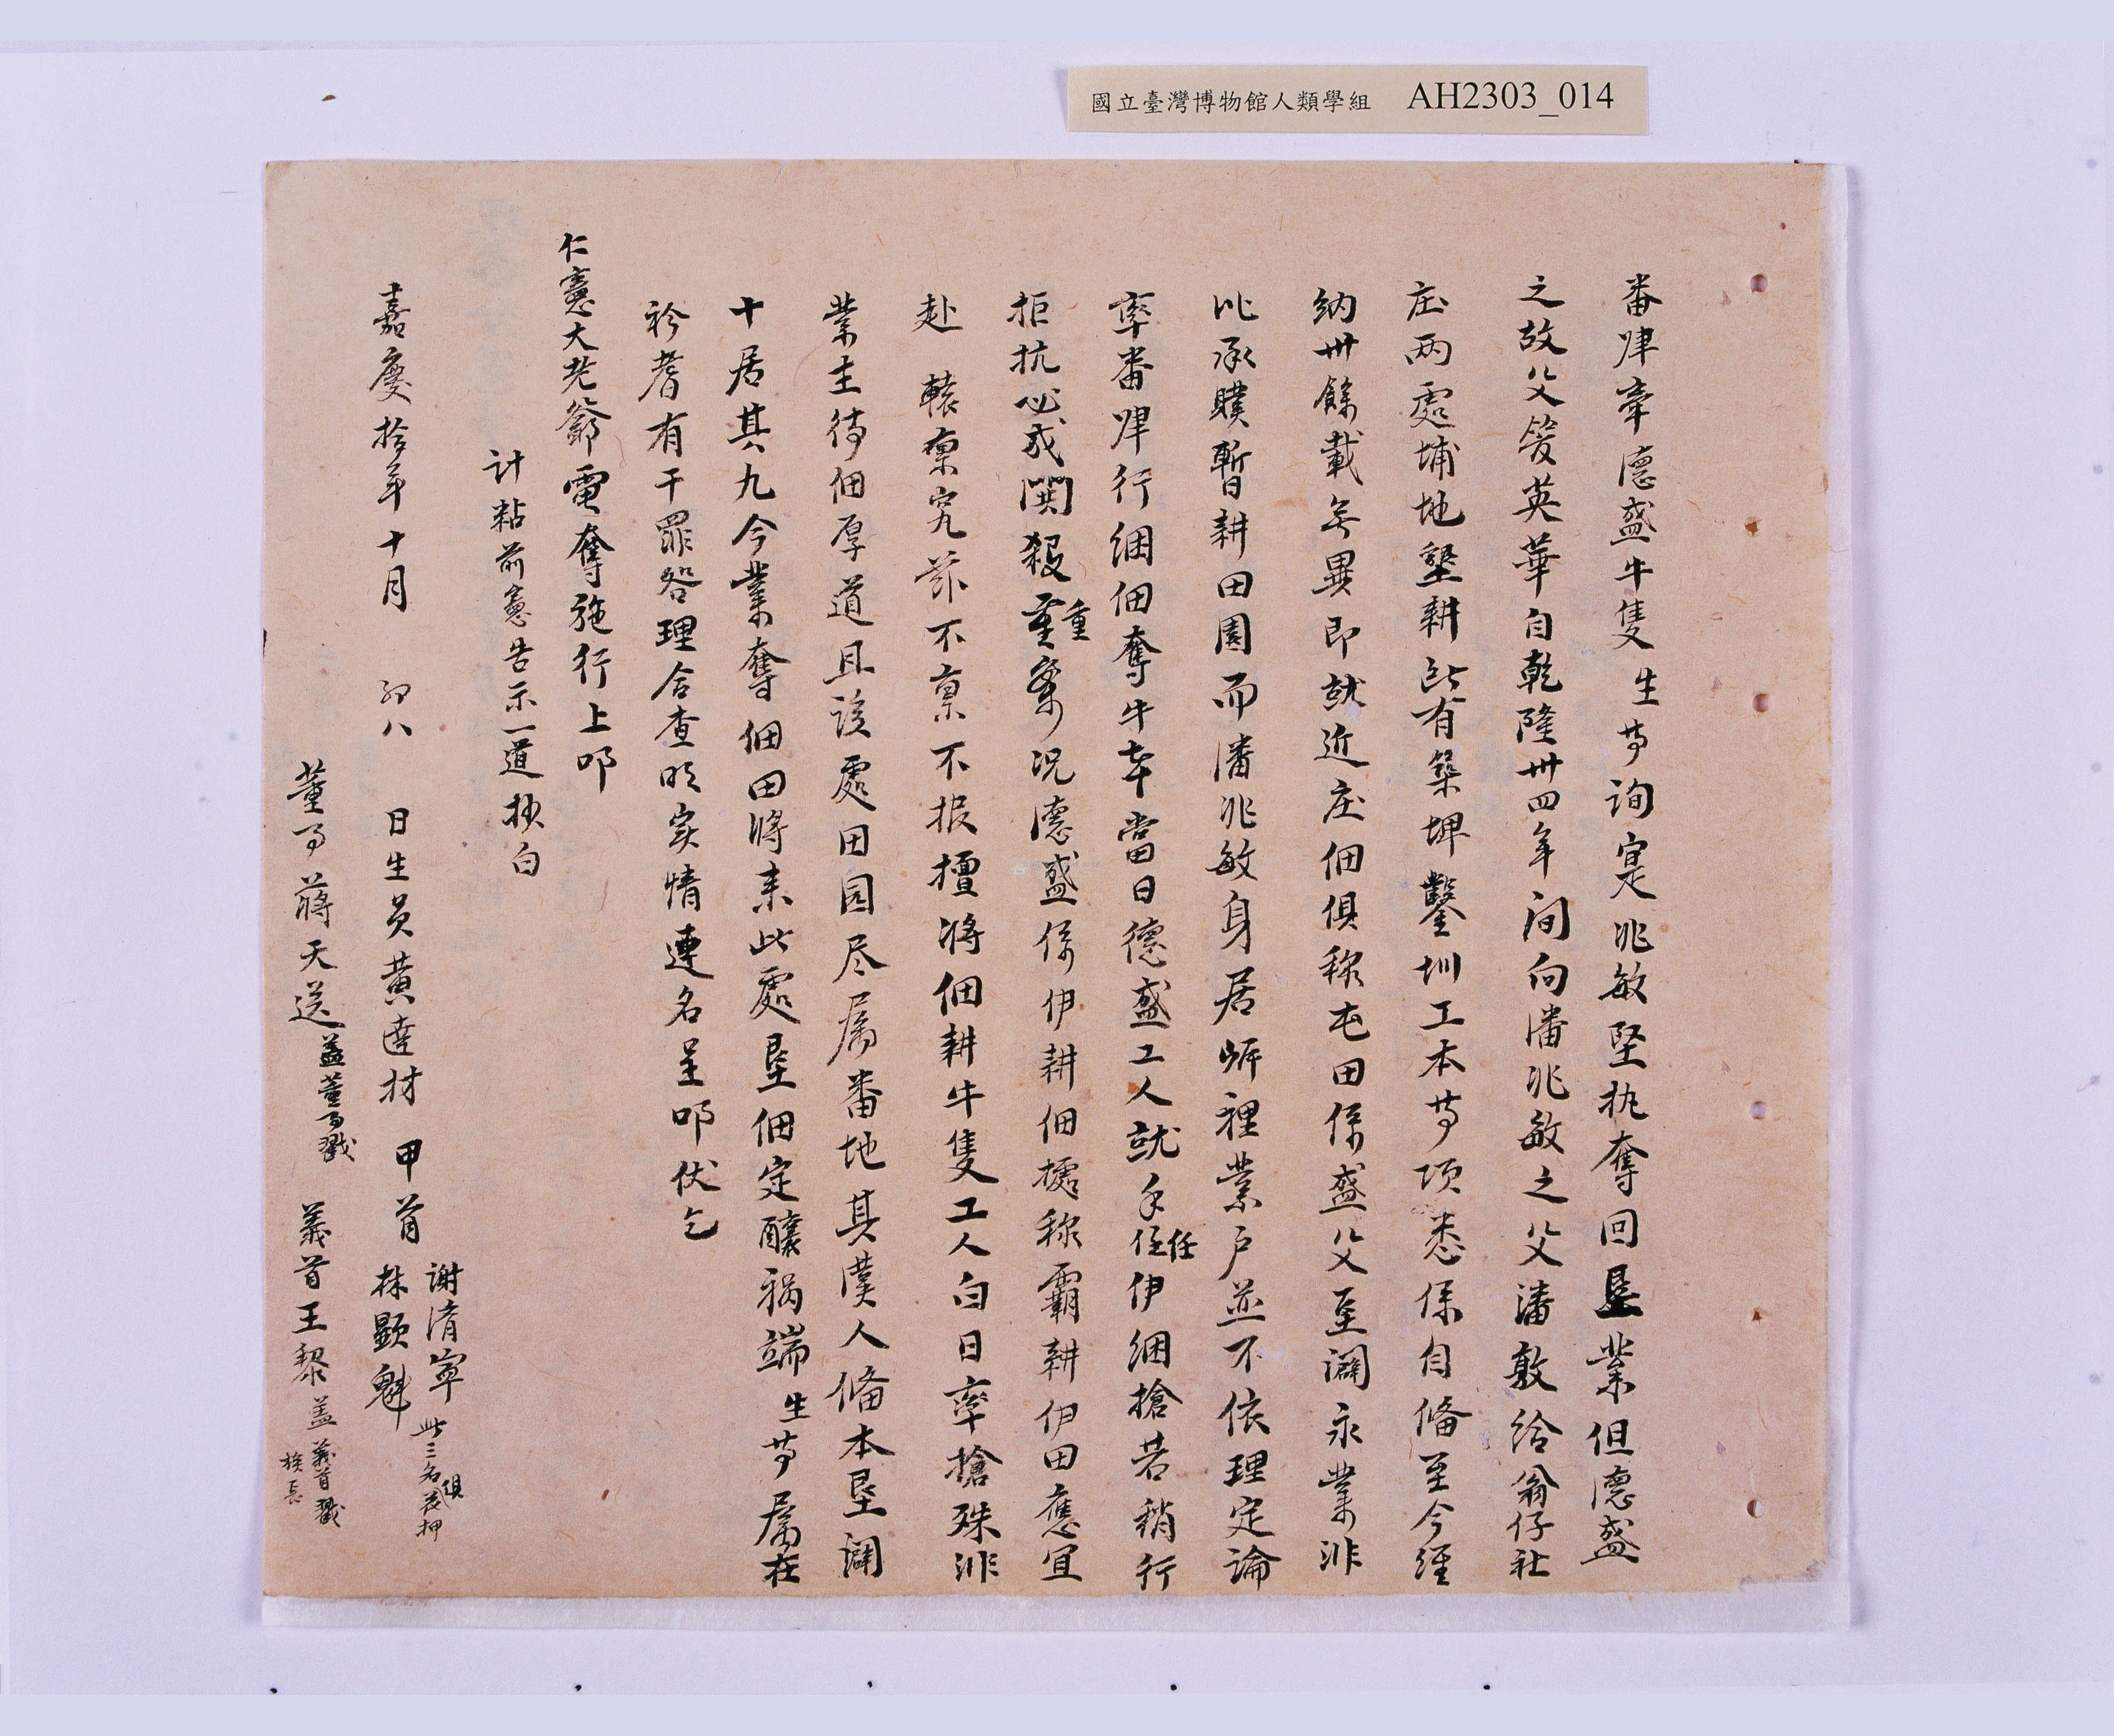 國立臺灣博物館人類學組 AH2303_014
番肆牽德盛牛隻生等詢寔兆敏堅执奪回垦業但德盛
之故父笅英華自乾隆卅四年间向潘兆敏之父潘敦给翁仔社
庄两處埔地墾耕所有築埤鑿圳工本等项悉係自偹至今經
納卅餘載無異即就近庄佃俱称屯田係盛父至闢永業非
比承贌暫耕田園而潘兆敏身居岍裡業户並不依理定論
率番肆行綑佃奪牛幸當日德盛工人就手任任伊綑搶若稍行
拒抗必成閧殺重重案况德盛係伊耕佃據称霸耕伊田應宜
赴 轅禀究茲不禀不报擅将佃耕牛隻工人白日率搶殊非
業主待佃厚道且该處田园尽属番地其漢人偹本垦闢
十居其九今業奪佃田將来此處垦佃定釀禍端生等属在
衿耆有干罪咎理合查明实情連名呈叩伏乞
仁憲大老爺電奪施行上叩
计粘前憲告示一道抉白
嘉慶拾年十月 初八 日生员黄逵材 甲首 謝清寧 林顕魁 此三名俱花押
董事蔣天送盖董事戳 義首王黎盖義首戳 族長